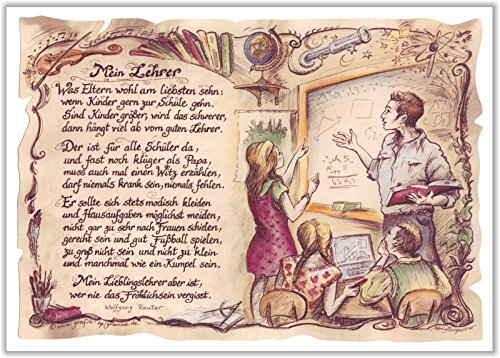 Mein Lehrer
Was Eltern wohl am liebsten sehn:
wenn Kinder gern zur Schule gehn.
Sind Kinder größer, wird das schwerer,
dann hängt viel ab vom guten Lehrer.
Der ist für alle Schüler da,
und fast noch klüger als Papa,
muss auch mal einen Witz erzählen,
darf niemals krank sein, niemals fehlen.
Er sollte sich stets modisch kleiden
und Hausaufgaben möglichst meiden,
nicht gar zu sehr nach Frauen schielen,
gerecht sein und gut Fußball spielen,
zu groß nicht sein und nicht zu klein
und manchmal wie ein Kumpel sein.
Mein Lieblingslehrer aber ist,
wer nie das Fröhlichsein vergisst.
Wolfgang Reuter
©www.grafik-epigramme.de